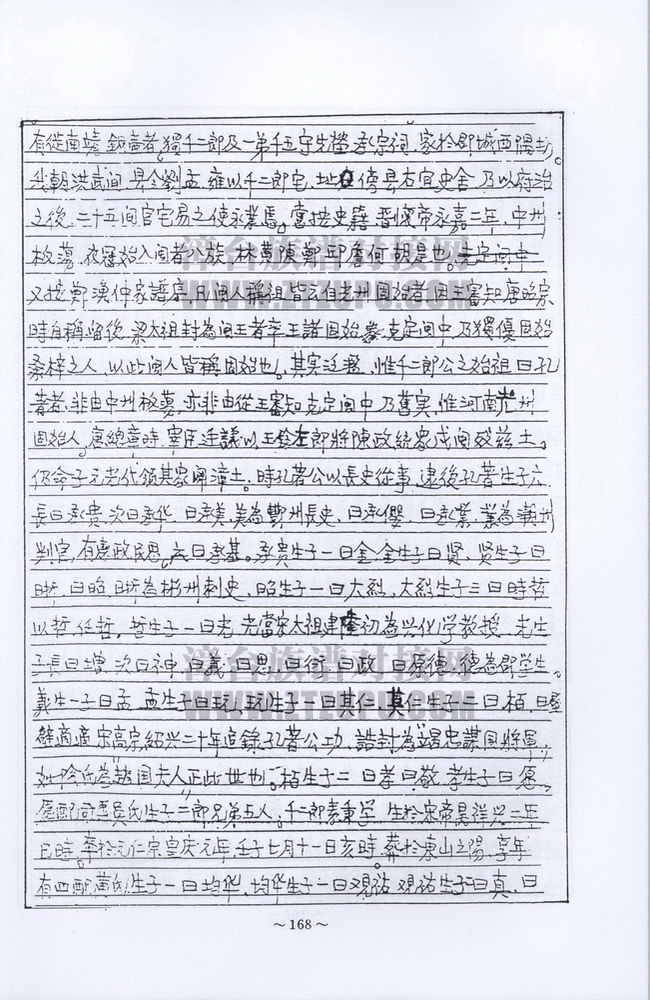 有從南靖 鎮壽者,獨千二郎及一弟千五守先塋承宗祠,家於郡城西隅坊。
我朝洪武間,縣令劉孟,雍以千二郎宅,址 傍縣右宜史舍,乃以府治
之後,二十五間官宅易之使永業焉,嘗按史籍,晋懷帝永嘉二年,中州
板蕩,衣冠始入閩者八族,林黄陳鄭邱詹何胡是也。克定閩中
又按鄭漢仲家譜序,凡閩人稱祖皆云自光州固始者,因王審知唐昭宗
時自稱留後,梁太祖封為閩王者率王諸固始衆,克定閩中,乃獨優固始
桑梓之人,以此閩人皆稱固始也。其实泛濫,惟千二郎公之始祖曰孔
著者,非由中州板蕩,亦非由從王審知克定閩中乃舊实,惟河南光州
固始人。唐總章時,宰臣廷議以玉鈐左郎將陳政統衆戍閩 兹土。
仍命子元光代領其衆開漳土。時孔著公以長史從事,逮後孔著生子六
長曰承贵,次曰承华,曰承美,美為 州長史,曰承儼,曰承業,業為潮州
判官,有惠政民思,六曰承基。承贵生子一曰金,金生子曰贤,贤生子曰
晣,曰昭,晣為彬州刺史,昭生子一曰大烈,大烈生子三曰時哲
以哲,任哲,哲生子一曰光,光當宋太祖建隆初為兴化学教授,光生
子長曰增,次曰神,曰義,曰思,曰衍,曰政,曰原德,德為郡学生。
義生一子曰孟,孟生子曰玩,玩生子一曰其仁,其仁生子二曰栢,曰
適適宋高宗紹兴二十年追錄孔著公功,誥封為竭忠謀国將軍,
妣陰氏為越国夫人正此世也。栢生子二曰孝曰敬,孝生子曰愿,
愿配司馬吳氏生子二郎兄弟五人,千二郎素重学,生於宋帝昺祥兴二年
巳時,卒於元仁宗皇庆元年,壬子七月十一日亥時,葬於東山之陽,享年
有四配黄氏生子一曰均华,均华生子一曰观祐,观祐生子曰真,曰
～168～
漳台族谱对接网
WWW.ZTZUPU.COM
漳台族谱对接网
WWW.ZTZUPU.COM